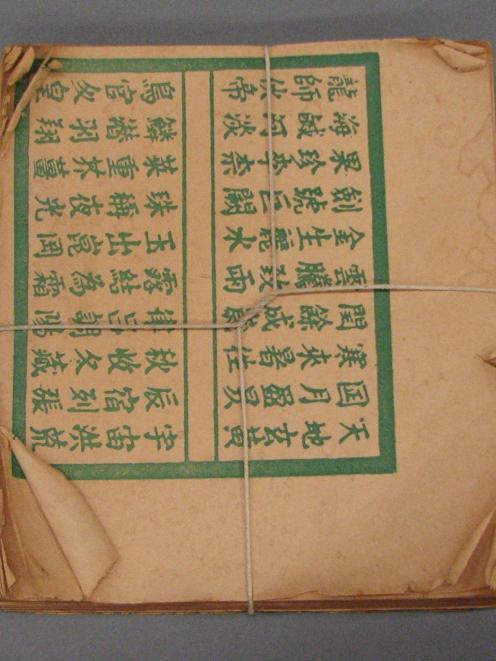 天地玄黃
宇宙洪荒
日月盈昃
辰宿列張
寒來暑往
秋收冬藏
閏餘成歲
律呂調陽
雲騰致雨
露結為霜
金生麗水
玉出崑岡
劍號巨闕
珠稱夜光
果珍李柰
菜重芥薑
海鹹河淡
鱗潛羽翔
龍師火帝
鳥官人皇